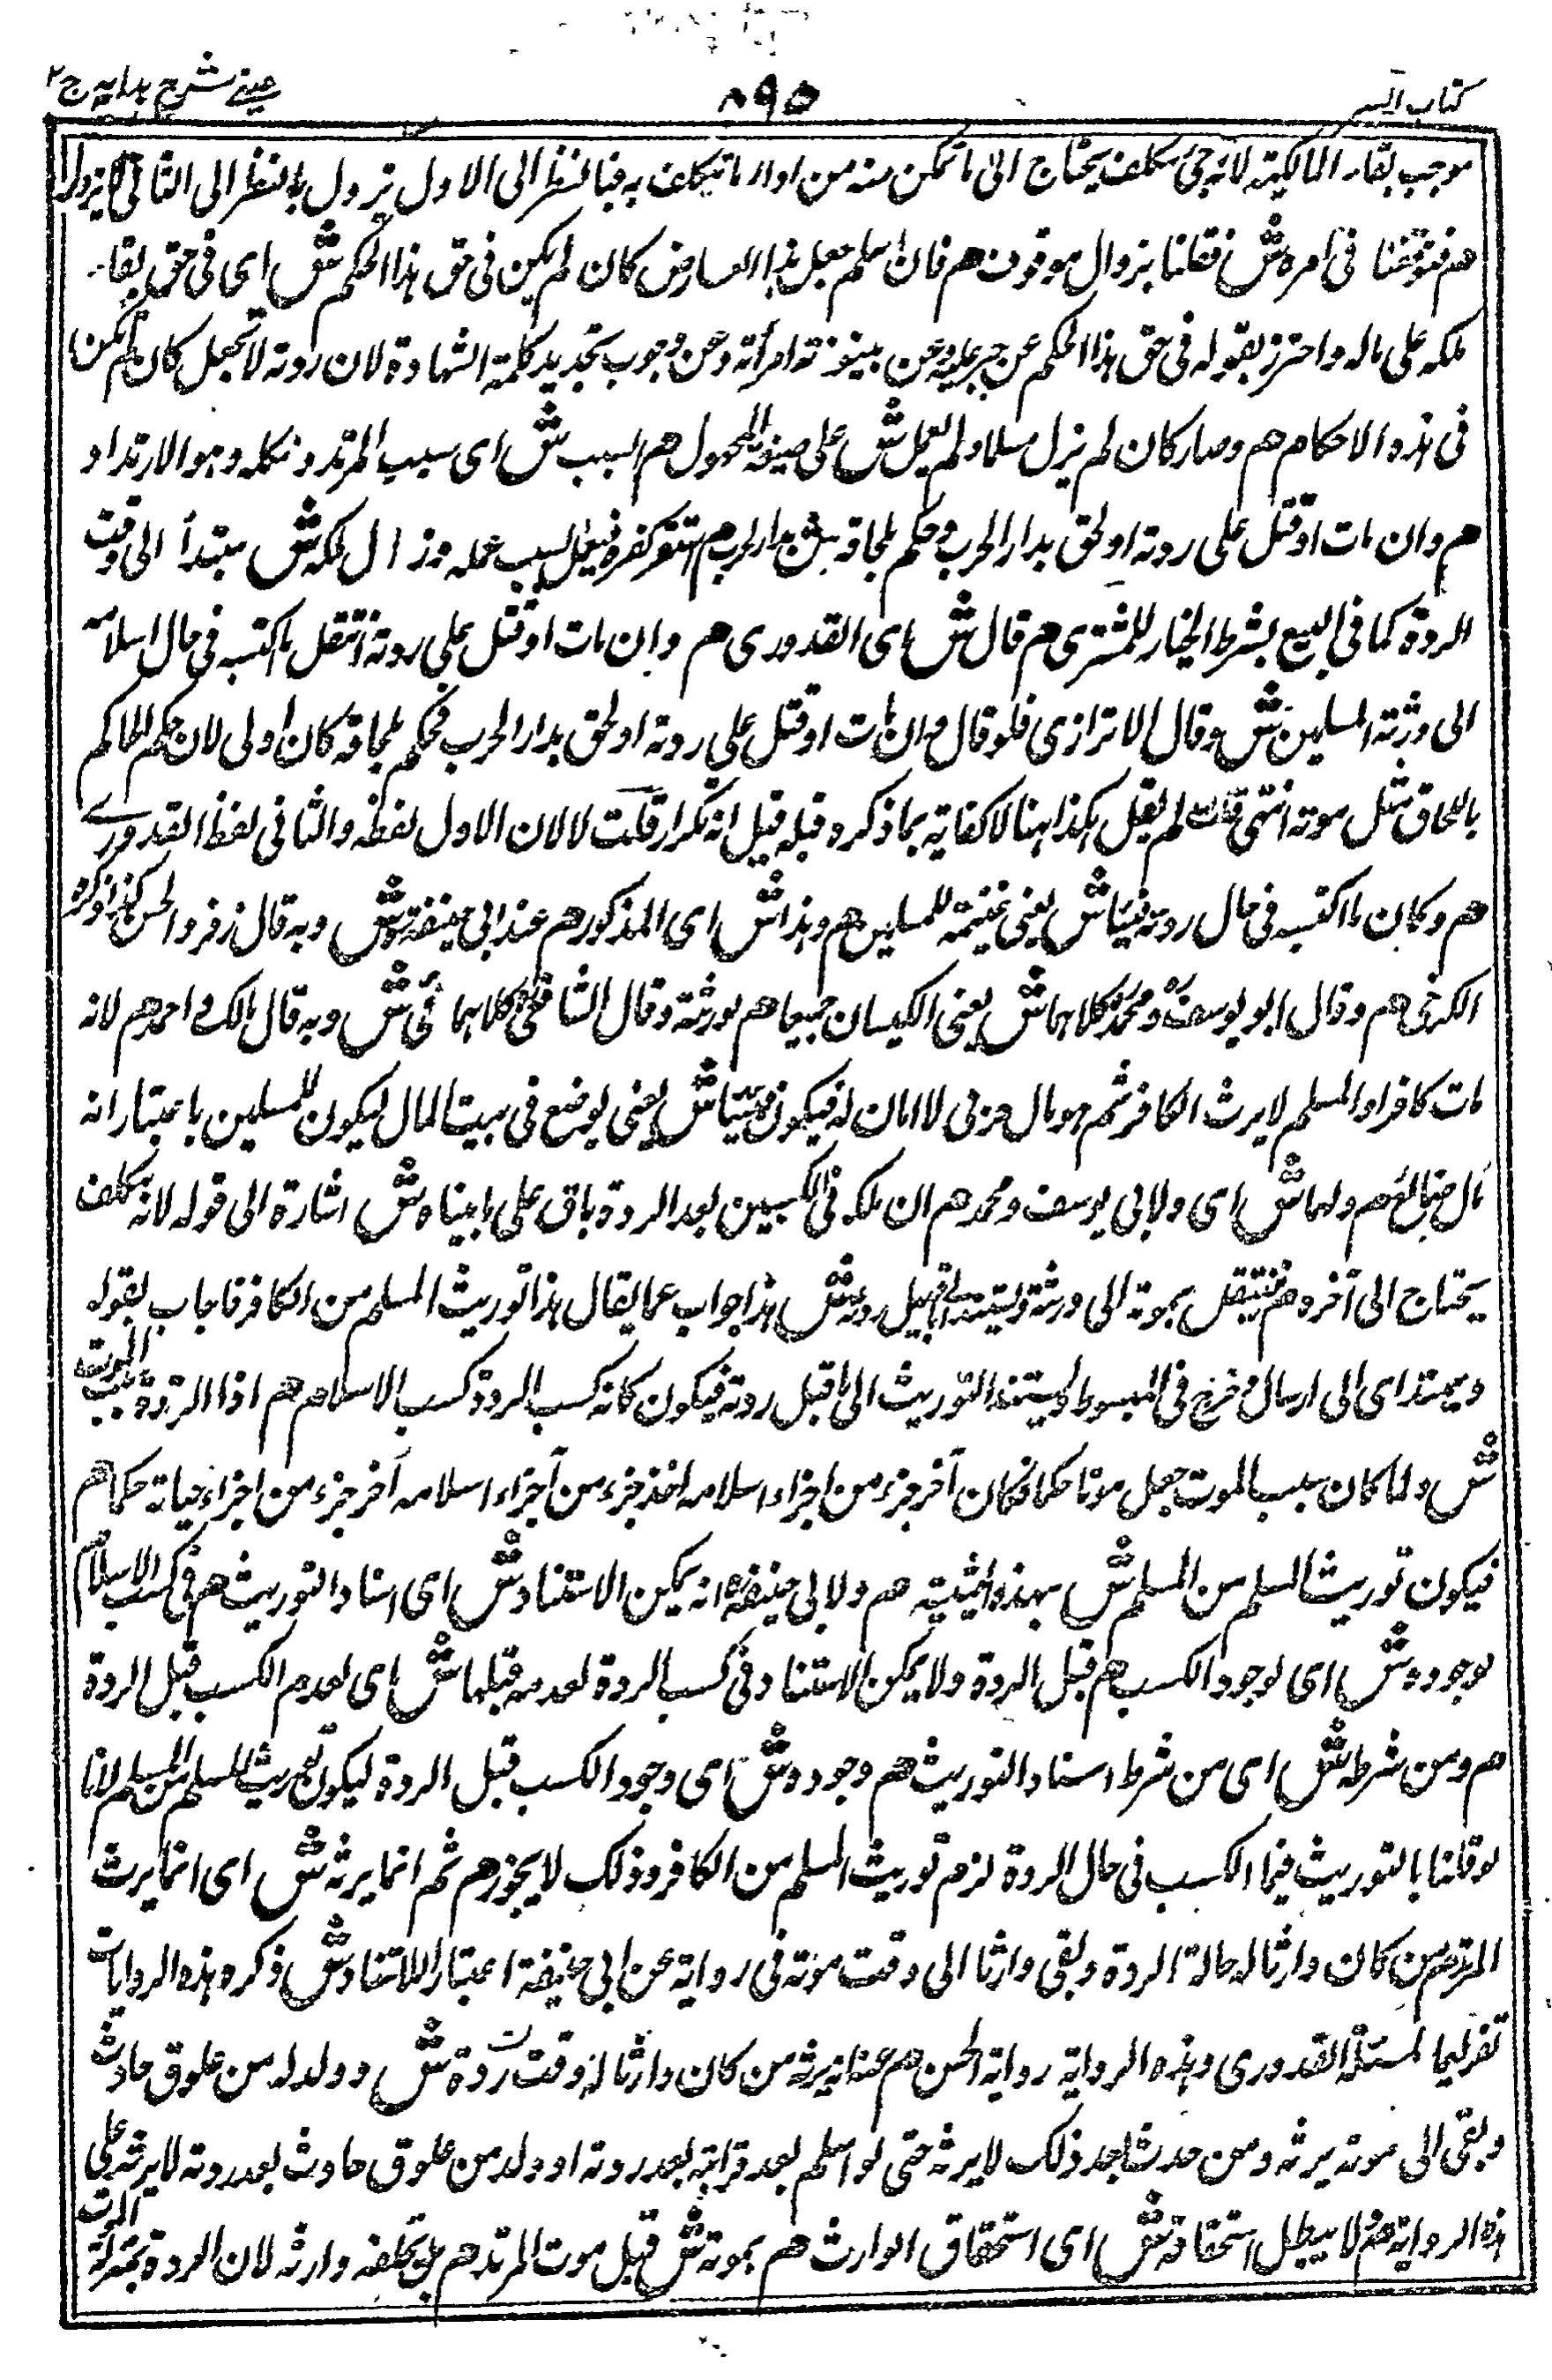 كتاب السير ٨٩٥ عيني شرح هدايه ج٢
موجب بقاء المالكية لانه حي مكلف يحتاج الى ما تمكن منه من اداء ما تكلف به فبالنظر الى الاول يزول بالنظر الى الثاني لا يزول
هم فتوقفنا في امره ش فقلنا بزوال موقوف هم فان اسلم جعل هذا العارض كان لم يكن في حق هذا الحكم ش اى في حق بقاء
ملكه على ماله واحترز بقوله في حق هذا الحكم عن حبط عمله وعن بينونة امرأته وعن وجوب تجديد كلمة الشهادة لان ردته لا تجعل كان لم تكن
في هذه الاحكام هم وصار كان لم يزل مسلما ولم يعمل ش على صيغة المجهول هم السبب ش اى سبب المرتد وملكه وهو الارتداد
هم وان مات او قتل على ردته او لحق بدار الحرب وحكم بلحاقه ش بدار الحرب هم استقر كفره فيعمل السبب عمله وزال ملكه ش مبتدأ الى وقت
الردة كما في البيع بشرط الخيار للمشترى هم قال ش اى القدورى هم وان مات او قتل على ردته انتقل ما اكتسبه في حال اسلامه
الى ورثته المسلمين ش وقال الاترازى فلو قال وان مات او قتل على ردته او لحق بدار الحرب فحكم بلحاقه كان اولى لان حكم الحاكم
باللحاق مثل موته انتهى قلت لم يقل هكذا هنا لاكفاية بما ذكره قبله قيل انه تكرار قلت لا لان الاول لفظه والثاني لفظ القدورے
هم وكان ما اكتسبه في حال ردته فيئا ش يعنى غنيمة للمسلمين هم وهذا ش اى المذكور هم عند ابى حنيفة ش وبه قال زفر والحسن كذا ذكره
الكرخى هم وقال ابو يوسف ومحمد كلاهما ش يعنى الكسبان جميعا هم لورثته وقال الشافعى كلاهما فئ ش وبه قال مالك واحمد هم لانه
مات كافرا والمسلم لا يرث الكافر ثم هو مال حربى لا امان له فيكون فيئا ش يعنى يوضع في بيت المال ليكون للمسلمين باعتبار انه
مال ضائع هم ولهما ش اى ولابى يوسف ومحمد هم ان ملكه في الكسبين بعد الردة باق على ما بيناه ش اشارة الى قوله لانه مكلف
يحتاج الى آخره هم فينتقل بموته الى ورثته ويستند الى ما قبيل ردته ش هذا جواب عما يقال هذا توريث المسلم من الكافر فاجاب بقوله
ويستند اى الى ارسال مخرج في المبسوط ويستند التوريث الى ما قبل ردته فيكون كانه كسب الردة كسب الاسلام هم اذا الردة سبب الموت
ش ولما كان سبب الموت جعل موتا حكما فكان آخر جزء من اجزاء اسلامه اخذ جزء من اجزاء اسلامه آخر جزء من اجزاء حياته حكما هم
فيكون توريث المسلم من المسلم ش بهذه الحيثية هم ولابى حنيفة انه يمكن الاستناد ش اى اسناد التوريث هم في كسب الاسلام
لوجوده ش اى لوجود الكسب هم قبل الردة ولا يمكن الاستناد في كسب الردة لعدمه قبلها ش اى لعدم الكسب قبل الردة
هم ومن شرطه ش اى من شرط اسناد التوريث هم وجوده ش اى وجود الكسب قبل الردة ليكون توريث المسلم من المسلم لانا
لو قلنا بالتوريث فيما اكسب في حال الردة لزم توريث المسلم من الكافر وذلك لا يجوز هم ثم انما يرثه ش اى انما يرث
المرتد هم من كان وارثا له حالة الردة وبقى وارثا الى وقت موته في رواية عن ابى حنيفة اعتبارا للاستناد ش ذكره هذه الروايات
تفريعا لمسئلة القدورى وهذه الرواية رواية الحسن هم عنه انه يرثه من كان وارثا له وقت ردة ش وولد له من علوق حادث
وبقى الى موته يرثه ومن حدث بعد ذلك لا يرثه حتى لو اسلم بعد قرابته بعد ردته او ولد من علوق حادث بعد ردته لا يرثه على
هذه الرواية هم ولا يبطل استحقاقه ش اى استحقاق الوارث هم بموته ش قبل موت المرتد هم بل يخلفه وارثه لان الردة بمنزلة الموت